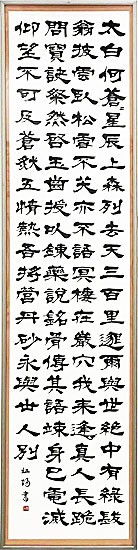 太白何蒼星辰上森列去天三百里邈爾與世絕中有綠髮
翁披雲臥松雪不笑亦不語冥棲在巖穴我來逢真人長跪
問寶訣粲然啓玉齒授以鍊藥說銘骨傳其語竦身已電滅
仰望不可及蒼然五情熱吾將營丹砂永與世人別
書